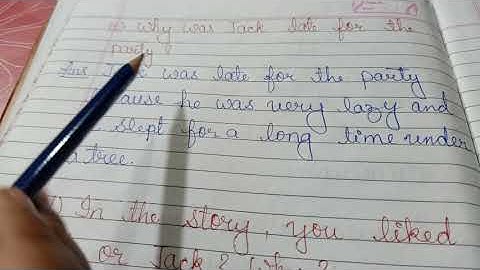 Why was Jack late for the
party
Ans was late for the party
he was very lazy and
slept for a long time under
a tree.
In the story, you liked
or Jack? Why?